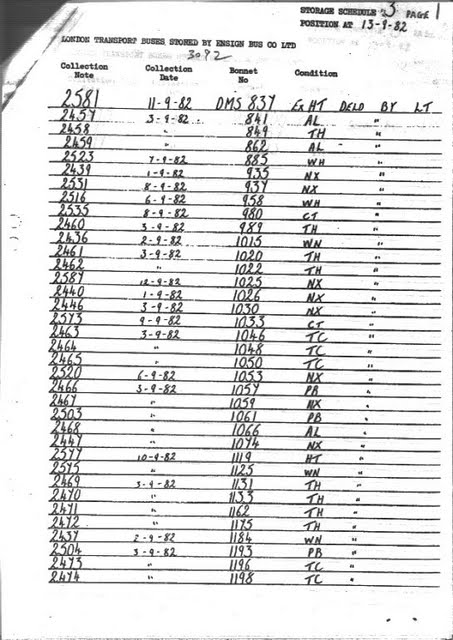 STORAGE SCHEDULE 3 PAGE 1
POSITION AT 13-9-82
LONDON TRANSPORT BUSES STORED BY ENSIGN BUS CO LTD
3092
Collection Note Collection Date Bonnet No Condition
2581 11-9-82 DMS 837 Ex HT DELD BY LT
2457 3-9-82 841 AL "
2458 " 849 TH "
2459 " 862 AL "
2523 7-9-82 885 WH "
2439 1-9-82 935 NX "
2531 8-9-82 937 NX "
2516 6-9-82 958 WH "
2535 8-9-82 980 CT "
2460 3-9-82 989 TH "
2436 2-9-82 1015 WN "
2461 3-9-82 1020 TH "
2462 " 1022 TH "
2587 12-9-82 1025 NX "
2440 1-9-82 1026 NX "
2446 3-9-82 1030 NX "
2573 9-9-82 1033 CT "
2463 3-9-82 1046 TC "
2464 " 1048 TC "
2465 " 1050 TC "
2520 6-9-82 1053 NX "
2466 3-9-82 1057 PB "
2467 " 1059 NX "
2503 " 1061 PB "
2468 " 1066 AL "
2447 " 1074 NX "
2577 10-9-82 1119 HT "
2575 " 1125 WN "
2469 3-9-82 1131 TH "
2470 " 1133 TH "
2471 " 1162 TH "
2472 " 1175 TH "
2437 2-9-82 1184 WN "
2504 3-9-82 1193 PB "
2473 " 1196 TC "
2474 " 1198 TC "